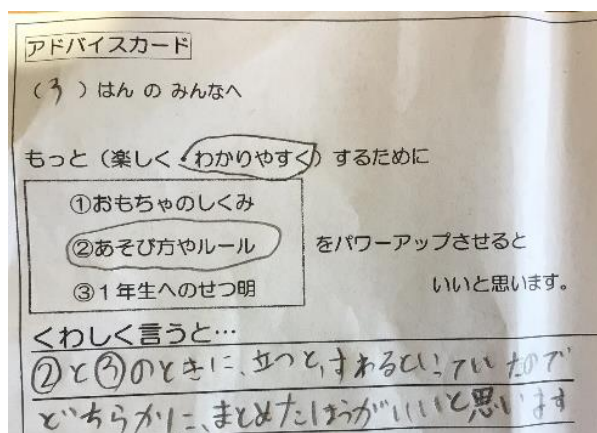 アドバイスカード
(3)はん の みんなへ
もっと(楽しく・わかりやすく)するために
①おもちゃのしくみ
②あそび方やルール
③1年生へのせつ明
をパワーアップさせると
いいと思います。
くわしく言うと…
②と③のときに、立つと、すわるといっていたので
どちらかに、まとめたほうがいいと思います